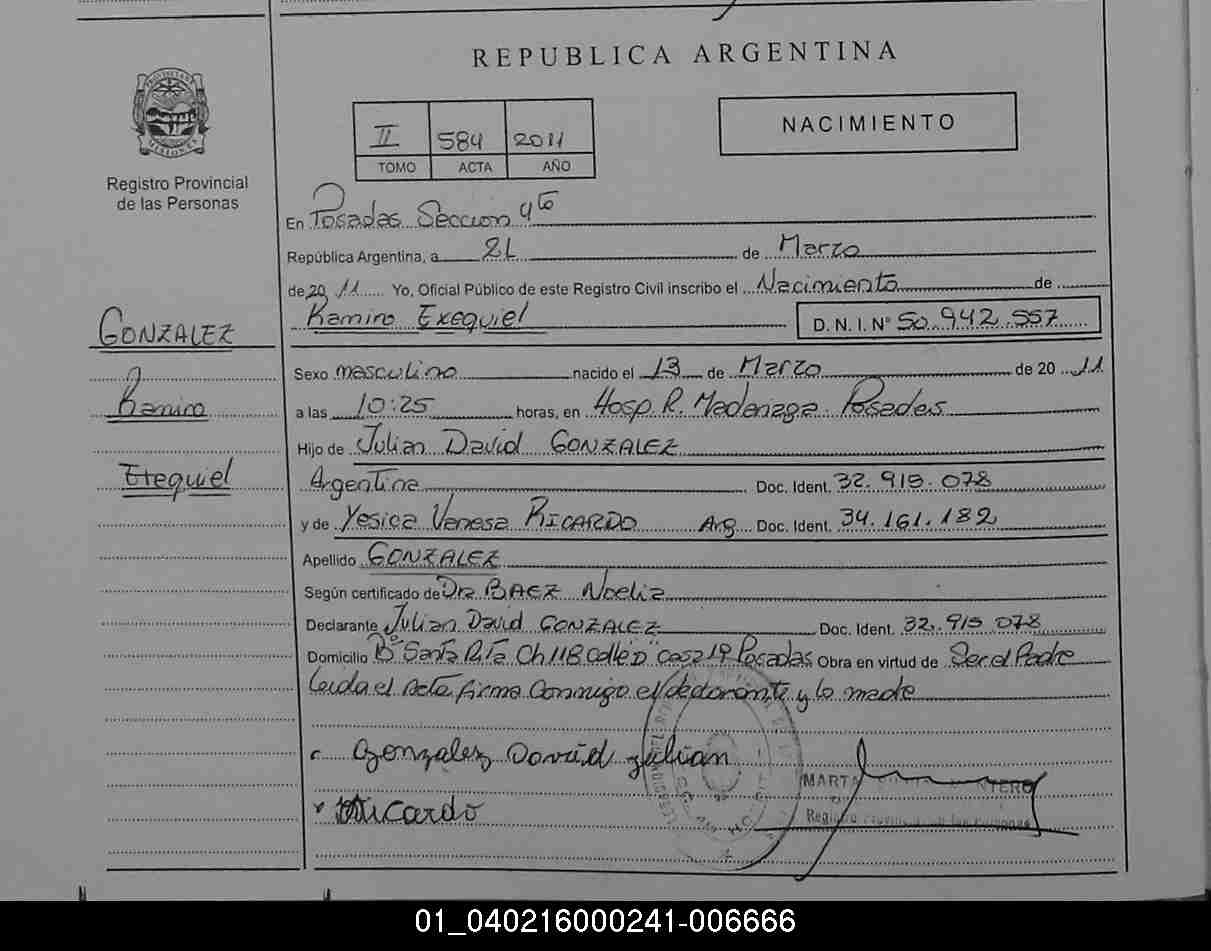 REPUBLICA ARGENTINA
II 584 2011
TOMO ACTA AÑO
NACIMIENTO
PROVINCIA
MISIONES
Registro Provincial
de las Personas
GONZALEZ
Ramiro
Exequiel
En Posadas Seccion 4ta
República Argentina, a 21 de Marzo
de 2011 Yo, Oficial Público de este Registro Civil inscribo el Nacimiento de
Ramiro Exequiel D. N. I. N° 50.942.557
Sexo masculino nacido el 13 de Marzo de 2011
a las 10:25 horas, en Hosp. R. Madariaga Posadas
Hijo de Julian David GONZALEZ
Argentina Doc. Ident. 32.915.078
y de Yesica Vanesa RICARDO Arg Doc. Ident. 34.161.182
Apellido GONZALEZ
Según certificado de Dra BAEZ Noelia
Declarante Julian David GONZALEZ Doc. Ident. 32.915 078
Domicilio B° Santa Rita Ch 118 Calle "D" casa 19 Posadas Obra en virtud de Ser el Padre
Leida el Acta firma Conmigo el declarante y la madre
Gonzalez David Julian
Ricardo
MARTA
Registro Provincial de las Personas
01_040216000241-006666